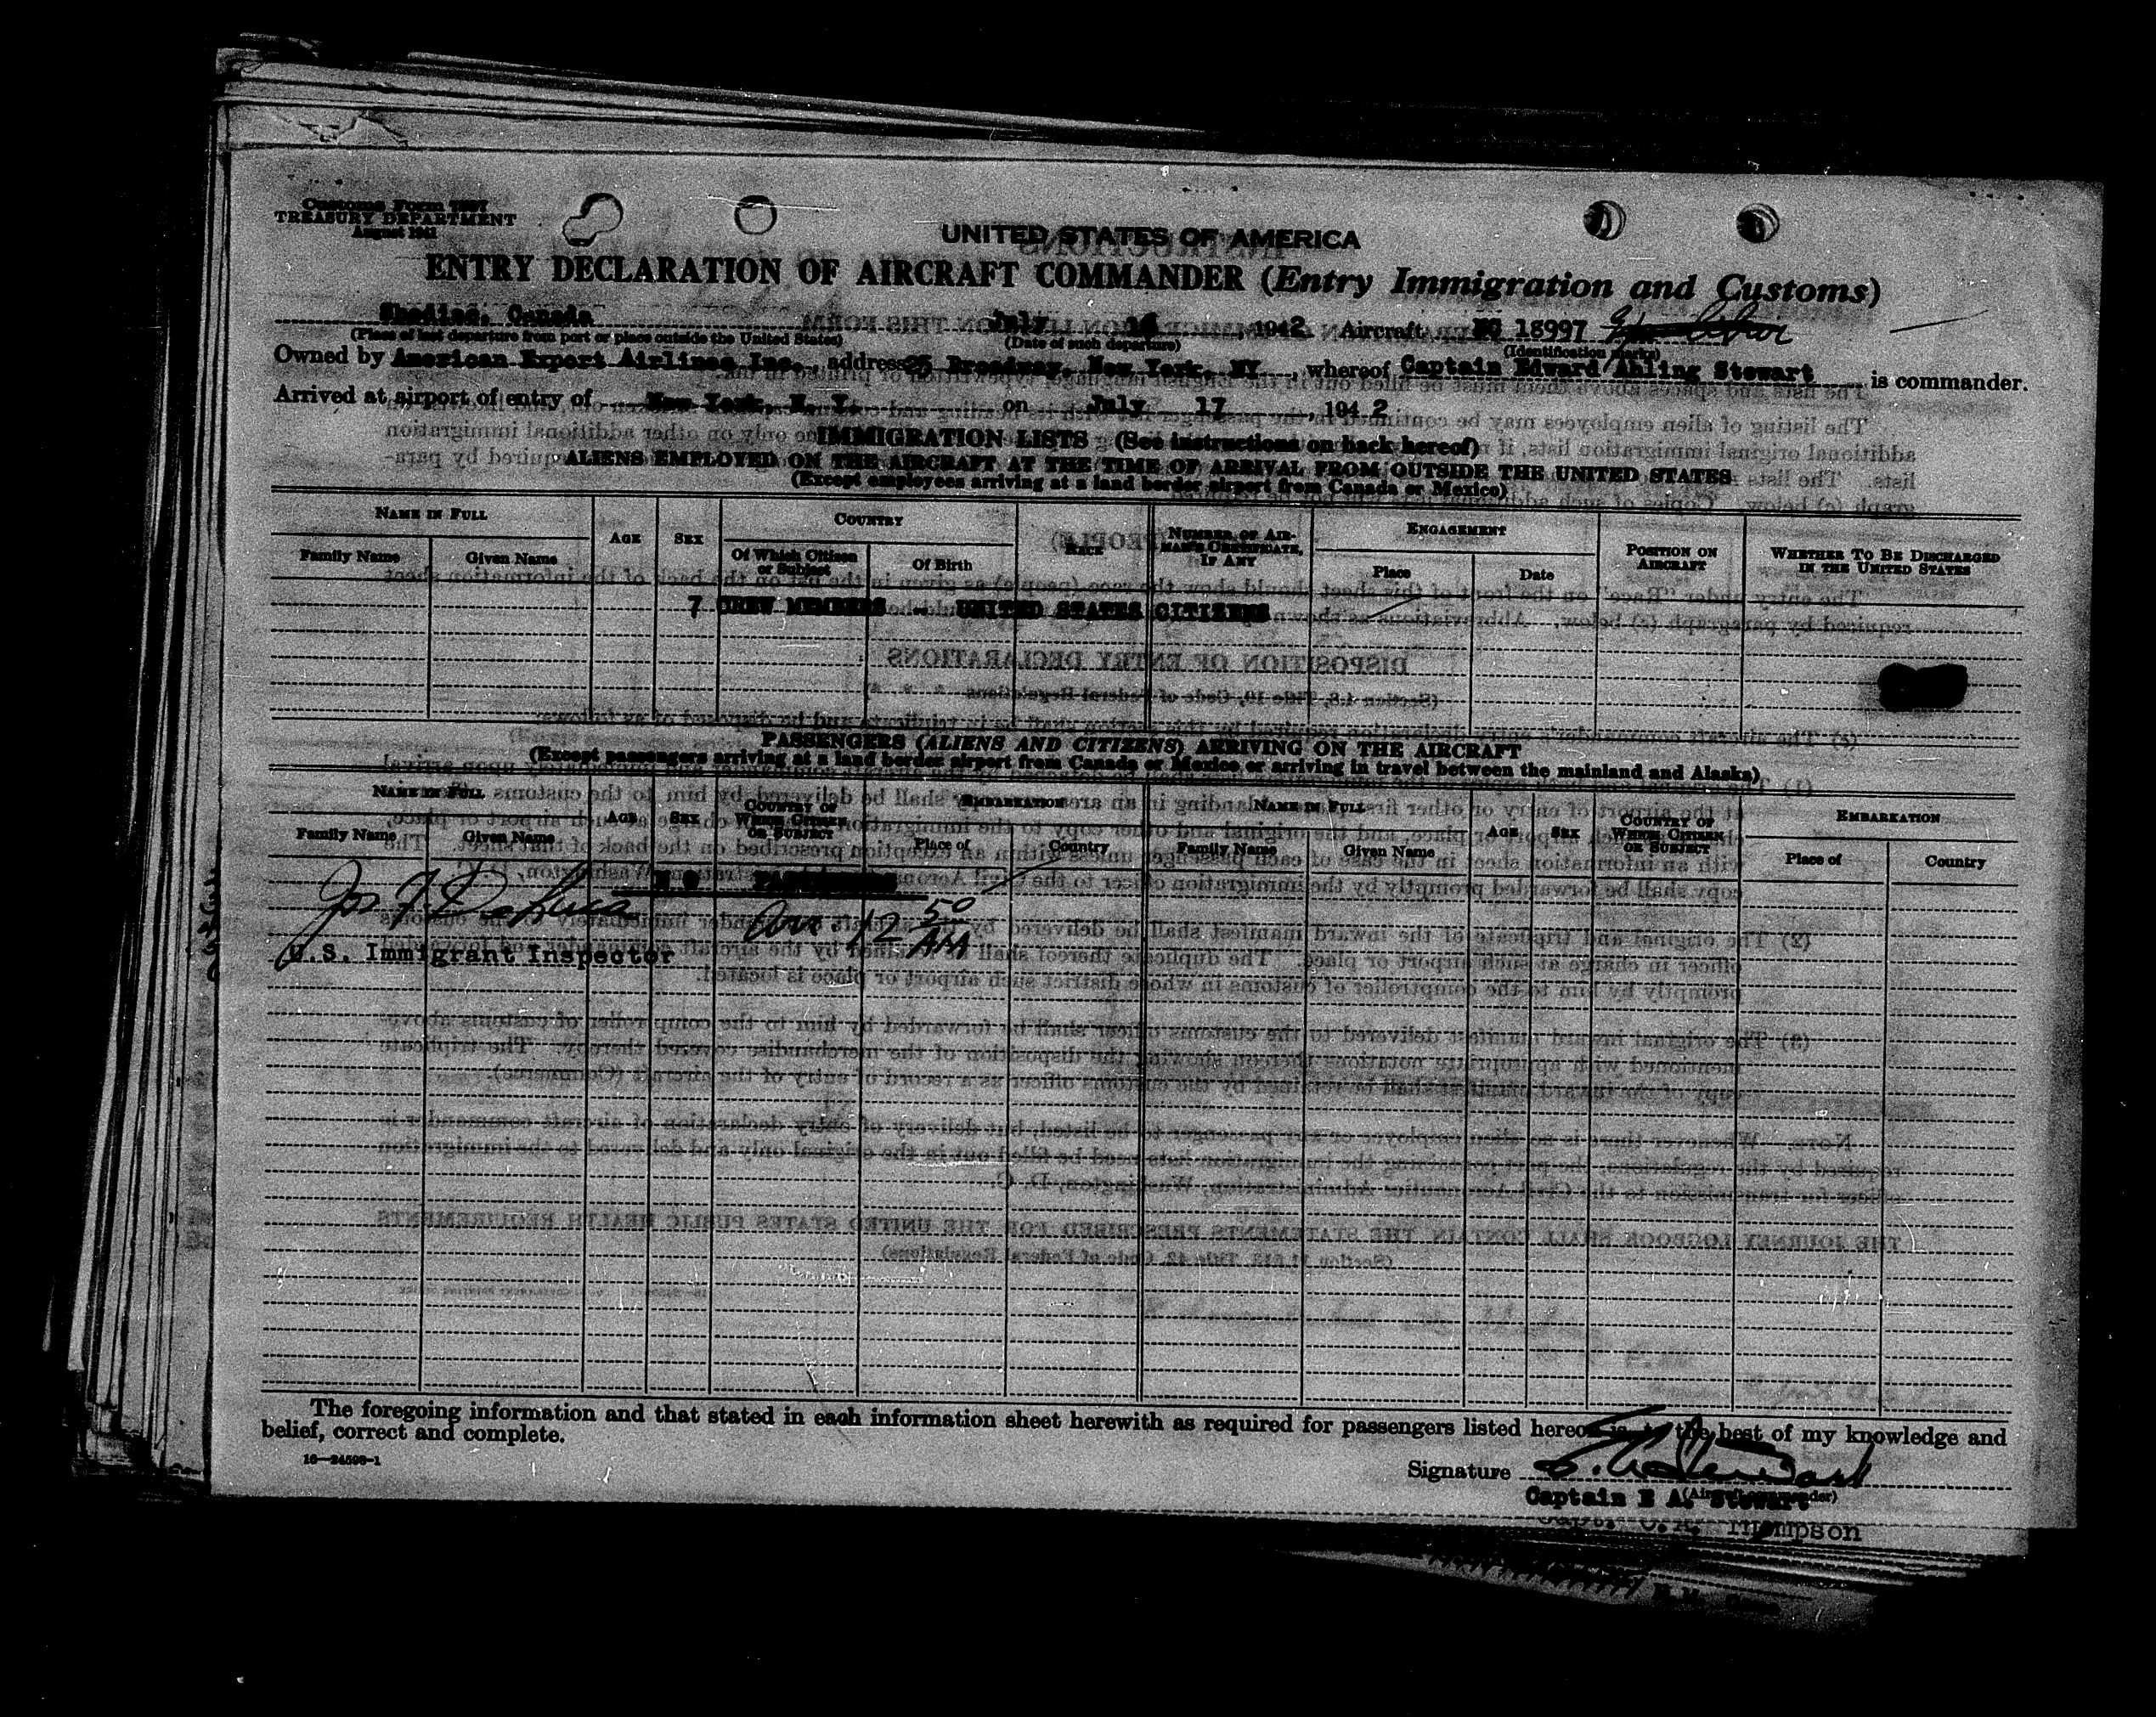 Customs Form 7507
TREASURY DEPARTMENT
August 1941
UNITED STATES OF AMERICA
ENTRY DECLARATION OF AIRCRAFT COMMANDER (Entry Immigration and Customs)
Shediac, Canada July 16, 1942 Aircraft 18997
(Place of last departure from port or place outside the United States) (Date of such departure) (Identification marks)
Owned by American Export Airlines Inc., address 25 Broadway, New York, NY, whereof Captain Edward Ahling Stewart is commander.
Arrived at airport of entry of New York, N. Y. on July 17, 1942
IMMIGRATION LISTS (See instructions on back hereof)
ALIENS EMPLOYED ON THE AIRCRAFT AT THE TIME OF ARRIVAL FROM OUTSIDE THE UNITED STATES
(Except employees arriving at a land border airport from Canada or Mexico)
NAME IN FULL AGE SEX COUNTRY RACE NUMBER OF AIRMAN'S CERTIFICATE, IF ANY ENGAGEMENT POSITION ON AIRCRAFT WHETHER TO BE DISCHARGED IN THE UNITED STATES
Family Name Given Name Of Which Citizen or Subject Of Birth Place Date
7 CREW MEMBERS - UNITED STATES CITIZENS
PASSENGERS (ALIENS AND CITIZENS) ARRIVING ON THE AIRCRAFT
(Except passengers arriving at a land border airport from Canada or Mexico or arriving in travel between the mainland and Alaska)
NAME IN FULL AGE SEX COUNTRY OF WHICH CITIZEN OR SUBJECT EMBARKATION NAME IN FULL AGE SEX COUNTRY OF WHICH CITIZEN OR SUBJECT EMBARKATION
Family Name Given Name Place of Country Family Name Given Name Place of Country
NO PASSENGERS
Jos F. DeLuca Arr. 12 50 AM
U.S. Immigrant Inspector
The foregoing information and that stated in each information sheet herewith as required for passengers listed hereon is, to the best of my knowledge and
belief, correct and complete.
16—24598-1
Signature E. A. Stewart
(Aircraft commander)
Captain E A. Stewart
Capt. C.A. Thompson